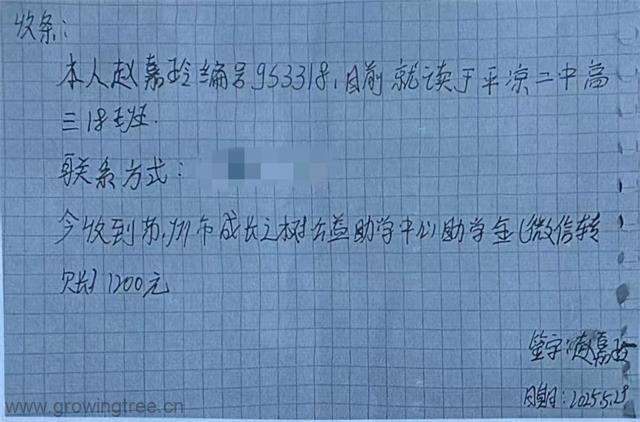 收条：
本人赵嘉玲编号953318，目前就读于平凉二中高
三18班.
联系方式：
今收到苏州市成长之树公益助学中心助学金（微信转
账）1200元
签字：赵嘉玲
日期：2025.5.29
www.growingtree.cn